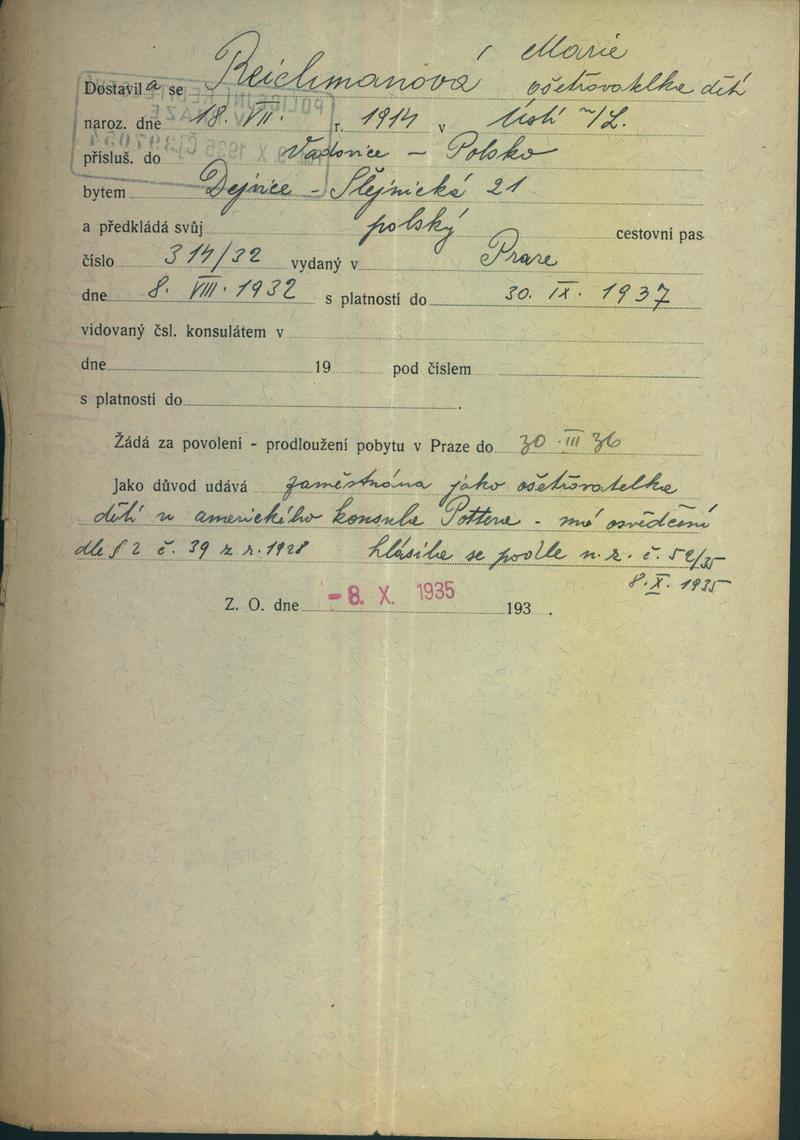 Marie
Dostavil a se Reichmanová ošetřovatelka dětí
naroz. dne 18. VII. r. 1914 v Ústí n/L.
přísluš. do Vadovice - Polsko
bytem Dejvice - Slejnická 21
a předkládá svůj polský cestovní pas
číslo 314/32 vydaný v Praze
dne 8. VIII. 1932 s platností do 30. IX. 1937
vidovaný čsl. konsulátem v
dne 19 pod číslem
s platností do .
Žádá za povolení - prodloužení pobytu v Praze do 30 III 36
Jako důvod udává zaměstnána jako ošetřovatelka
dětí u amerického konsula Pottera - má osvědčení
dle § 2 č. 39 z r. 1928 hlásila se podle n. z. č. 52/35
8. X. 1935
Z. O. dne - 8. X. 1935 193 .